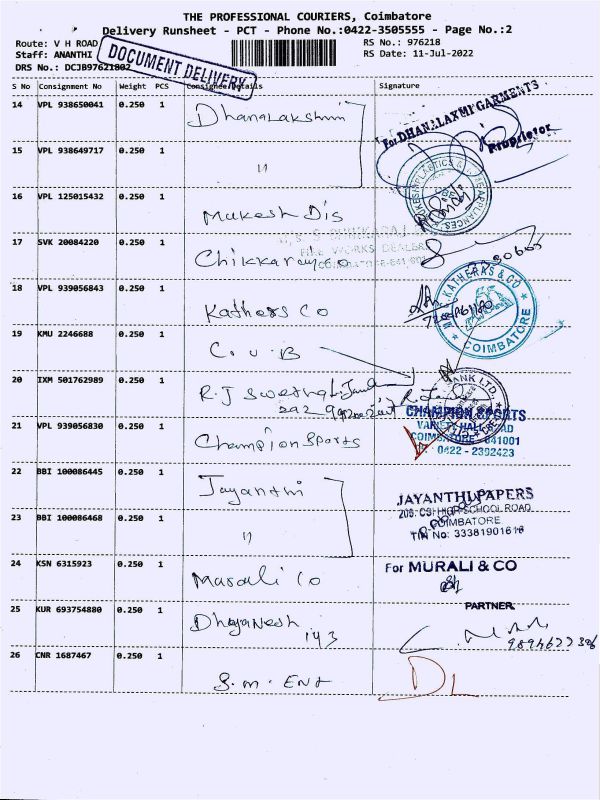 THE PROFESSIONAL COURIERS, Coimbatore
Delivery Runsheet - PCT - Phone No.:0422-3505555 - Page No.:2
Route: V H ROAD
RS No.: 976218
Staff: ANANTHI
RS Date: 11-Jul-2022
DRS No.: DCJB97621802
DOCUMENT DELIVERY
S No Consignment No Weight PCS Consignee Details Signature
14 VPL 938650041 0.250 1 Dhanalakshmi
For DHANALAXMI GARMENTS
Proprietor
15 VPL 938649717 0.250 1 "
16 VPL 125015432 0.250 1 Mukesh Dis
17 SVK 20084220 0.250 1 Chikkaraj co
FIRE WORKS DEALER
18 VPL 939056843 0.250 1 Kathers co
KATHERAS & CO
COIMBATORE
19 KMU 2246688 0.250 1 C.U.B
20 IXM 501762989 0.250 1 R.J Swetha
BANK LTD.
21 VPL 939056830 0.250 1 Champion Sports
CHAMPION SPORTS
VARIETY HALL ROAD
COIMBATORE - 641001
0422 - 2392423
22 BBI 100086445 0.250 1 Jayanthi
JAYANTHI PAPERS
COIMBATORE
TIN No: 33381901618
23 BBI 100086468 0.250 1 "
24 KSN 6315923 0.250 1 Murali Co
For MURALI & CO
PARTNER
25 KUR 693754880 0.250 1 Dhayanesh
143
26 CNR 1687467 0.250 1 S.M. Ent
DL